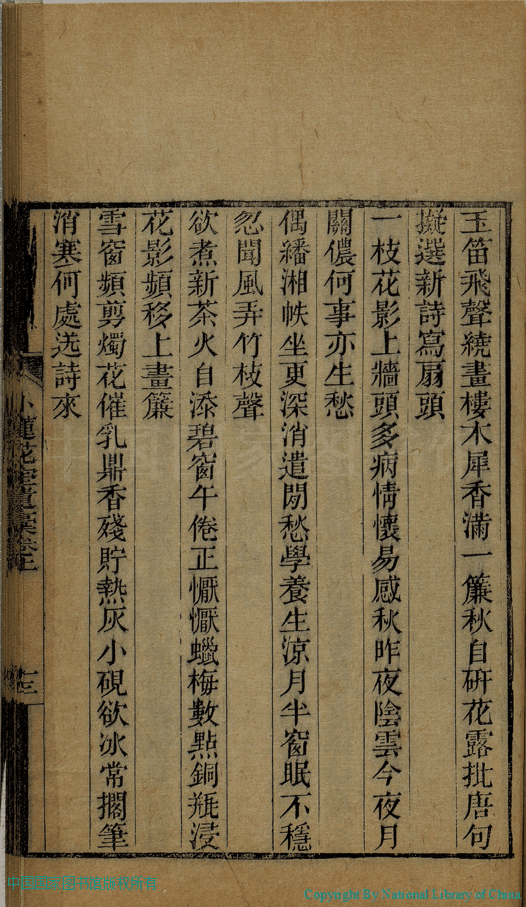 玉笛飛聲繞畫樓木犀香滿一簾秋自研花露批唐句
擬選新詩寫扇頭
一枝花影上牆頭多病情懷易感秋昨夜陰雲今夜月
關儂何事亦生愁
偶繙湘帙坐更深消遣閒愁學養生涼月半窗眠不穩
忽聞風弄竹枝聲
欲煮新茶火自添碧窗午倦正懨懨蠟梅數點銅瓶浸
花影頻移上畫簾
雪窗頻剪燭花催乳鼎香殘貯熱灰小硯欲冰常擱筆
消寒何處送詩來
小蓮花室遺稾卷上
十三
Copyright By National Library of China